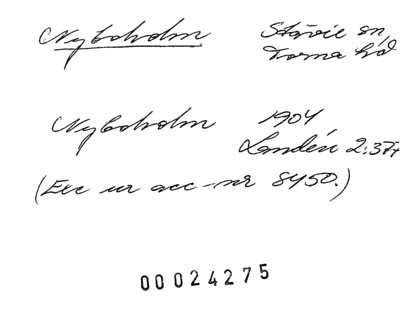 Nyboholm Stävie sn,
Torna hd
Nyboholm 1904
Landén 2:377
(Exc ur acc-nr 8450.)
00024275